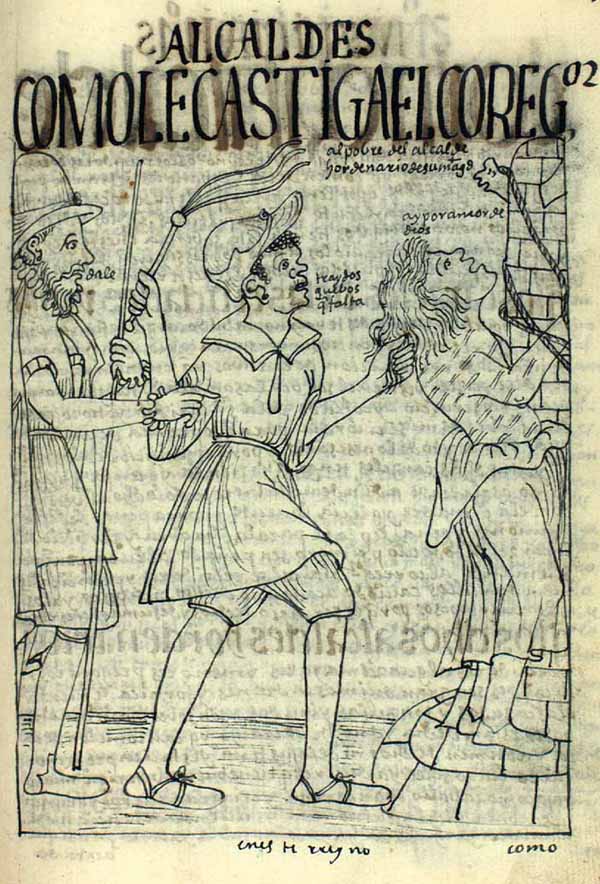 ALCALDES
COMOLECASTIGAELCOREG,02
alpobre del alcalde
hordenariodesumagd
ayporamorde
dios
dale
traydos
guebos
q̃ falta
como